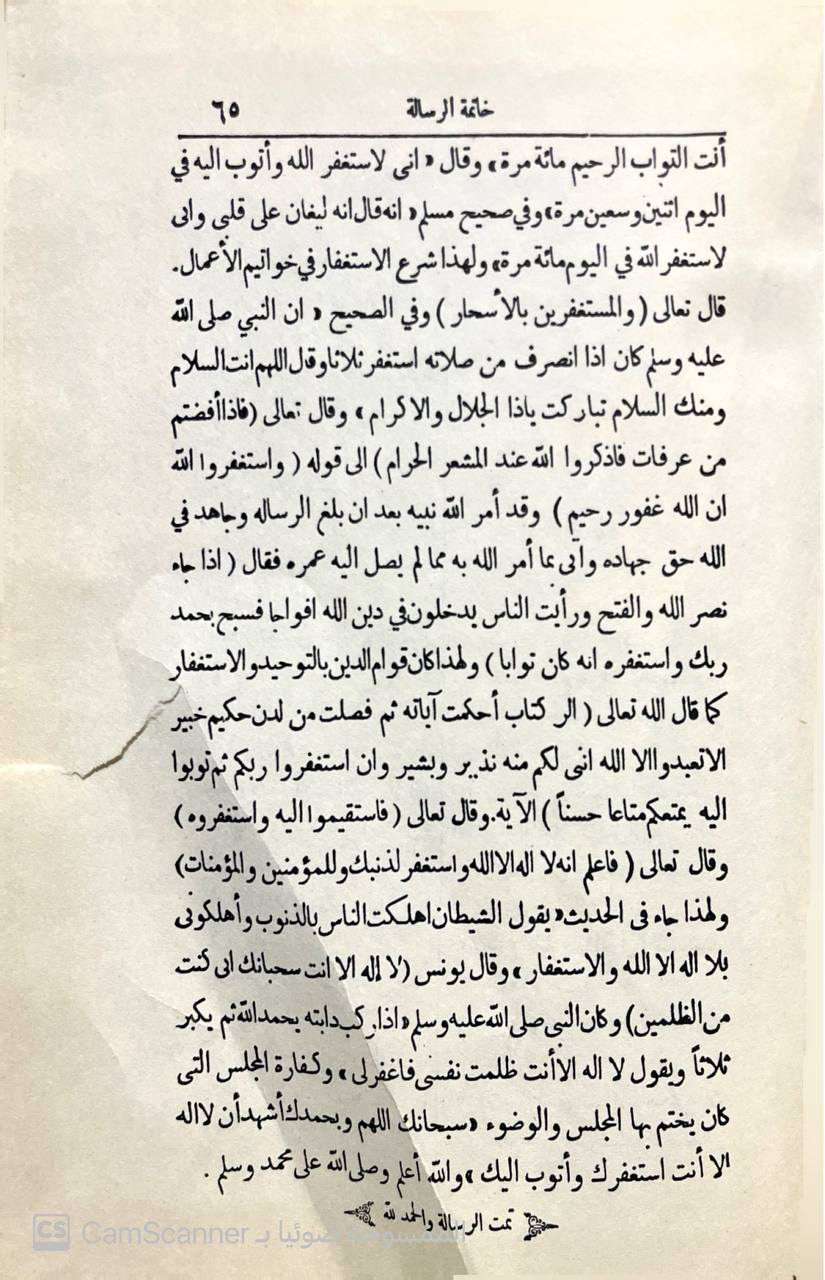 خاتمة الرسالة ٦٥
أنت التواب الرحيم مائة مرة» وقال «انى لاستغفر الله وأتوب اليه في
اليوم اثنين وسعين مرة» وفي صحيح مسلم «انه قال انه ليغان على قلبى وانى
لاستغفر الله في اليوم مائة مرة» ولهذا شرع الاستغفار في خواتيم الأعمال.
قال تعالى (والمستغفرين بالأسحار) وفي الصحيح «ان النبي صلى الله
عليه وسلم كان اذا انصرف من صلاته استغفر ثلاثا وقال اللهم انت السلام
ومنك السلام تباركت ياذا الجلال والاكرام» وقال تعالى (فاذا أفضتم
من عرفات فاذكروا الله عند المشعر الحرام) الى قوله (واستغفروا الله
ان الله غفور رحيم) وقد أمر الله نبيه بعد ان بلغ الرساله وجاهد في
الله حق جهاده واتى بما أمر الله به مما لم يصل اليه عمره فقال (اذا جاء
نصر الله والفتح ورأيت الناس يدخلون في دين الله افواجا فسبح بحمد
ربك واستغفره انه كان توابا) ولهذا كان قوام الدين بالتوحيد والاستغفار
كما قال الله تعالى (الر كتاب أحكمت آياته ثم فصلت من لدن حكيم خبير
الاتعبدوا الا الله انى لكم منه نذير وبشير وان استغفروا ربكم ثم توبوا
اليه يمتعكم متاعا حسناً) الآية. وقال تعالى (فاستقيموا اليه واستغفروه)
وقال تعالى (فاعلم انه لا اله الا الله واستغفر لذنبك وللمؤمنين والمؤمنات)
ولهذا جاء فى الحديث «يقول الشيطان اهلكت الناس بالذنوب وأهلكونى
بلا اله الا الله والاستغفار» وقال يونس (لا إله الا انت سحبانك انى كنت
من الظلمين) وكان النبى صلى الله عليه وسلم «اذا ركب دابته يحمد الله ثم يكبر
ثلاثاً ويقول لا اله الا أنت ظلمت نفسى فاغفر لى» وكفارة المجلس التى
كان يختم بها المجلس والوضوء «سبحانك اللهم وبحمدك أشهد أن لا اله
الا أنت استغفرك وأتوب اليك» والله أعلم وصلى الله على محمد وسلم.
تمت الرسالة والحمد لله
الممسوحة ضوئيا بـ CamScanner
CS